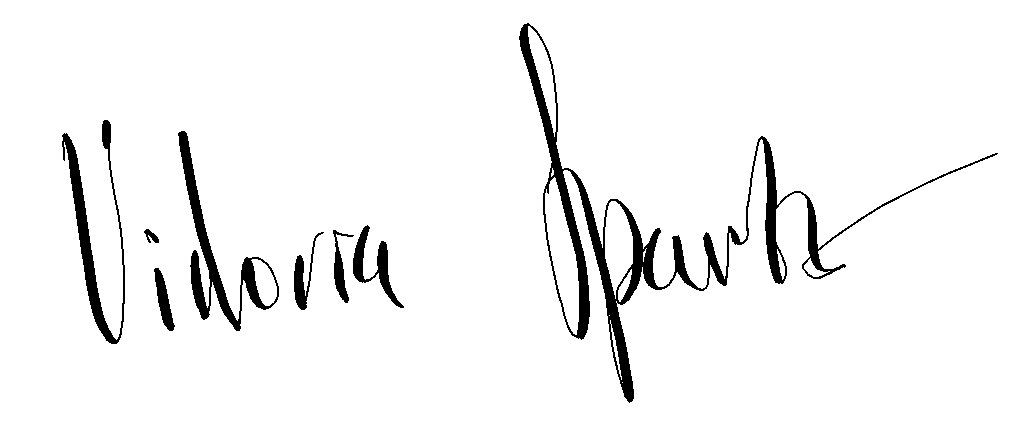 Victoria Spartz